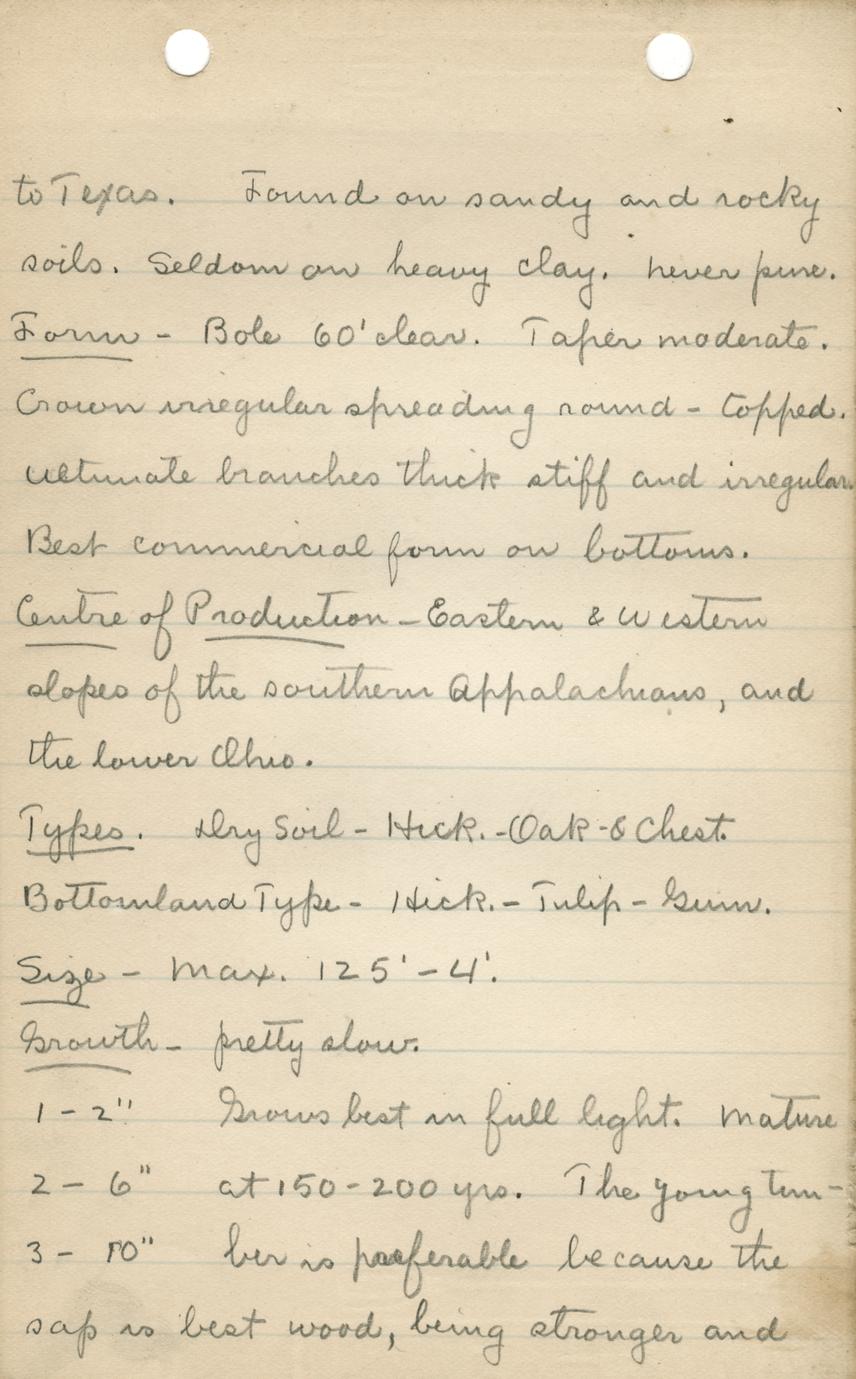 to Texas. Found on sandy and rocky
soils. Seldom on heavy clay. never pure.
Form - Bole 60' clear. Taper moderate.
Crown irregular spreading round - topped.
ultimate branches thick stiff and irregular.
Best commercial form on bottoms.
Centre of Production - Eastern & Western
slopes of the southern Appalachians, and
the lower Ohio.
Types. Dry Soil - Hick. - Oak - & Chest.
Bottomland Type - Hick. - Tulip - Gum.
Size - Max. 125' - 4'.
Growth - pretty slow.
1 - 2" Grows best in full light. Mature
2 - 6" at 150 - 200 yrs. The young tim-
3 - 10" ber is preferable because the
sap is best wood, being stronger and